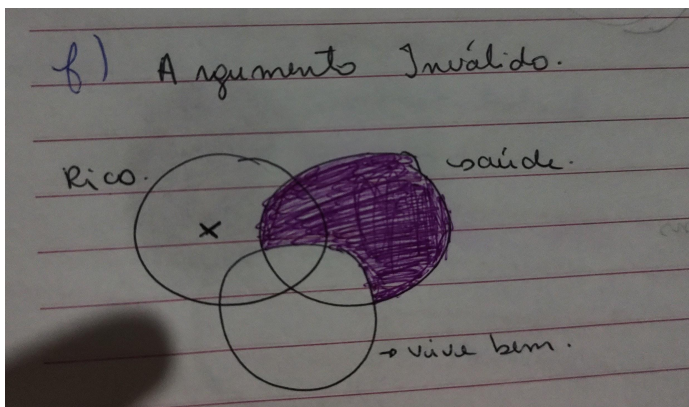 f) Argumento Inválido.
Rico. saúde.
x
→ vive bem.